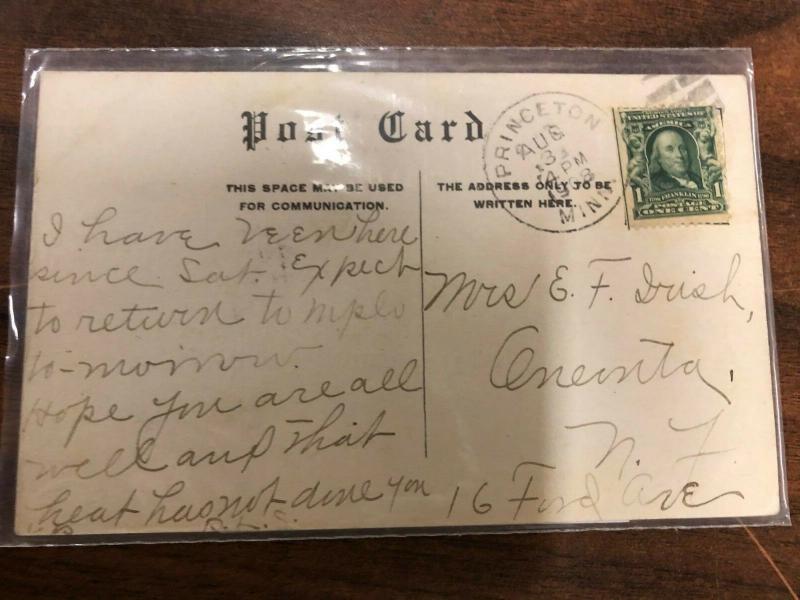 Post Card
THIS SPACE MAY BE USED
FOR COMMUNICATION.
THE ADDRESS ONLY TO BE
WRITTEN HERE.
PRINCETON
AUG
31
4 PM
1908
MINN
UNITED STATES OF
AMERICA
1
FRANKLIN
1
POSTAGE
ONE CENT
I have been here
since Sat. Expect
to return to Mpls
to-morrow.
Hope you are all
well and that
heat has not done you
Mrs E. F. Irish,
Oneonta,
N. Y
16 Ford Ave